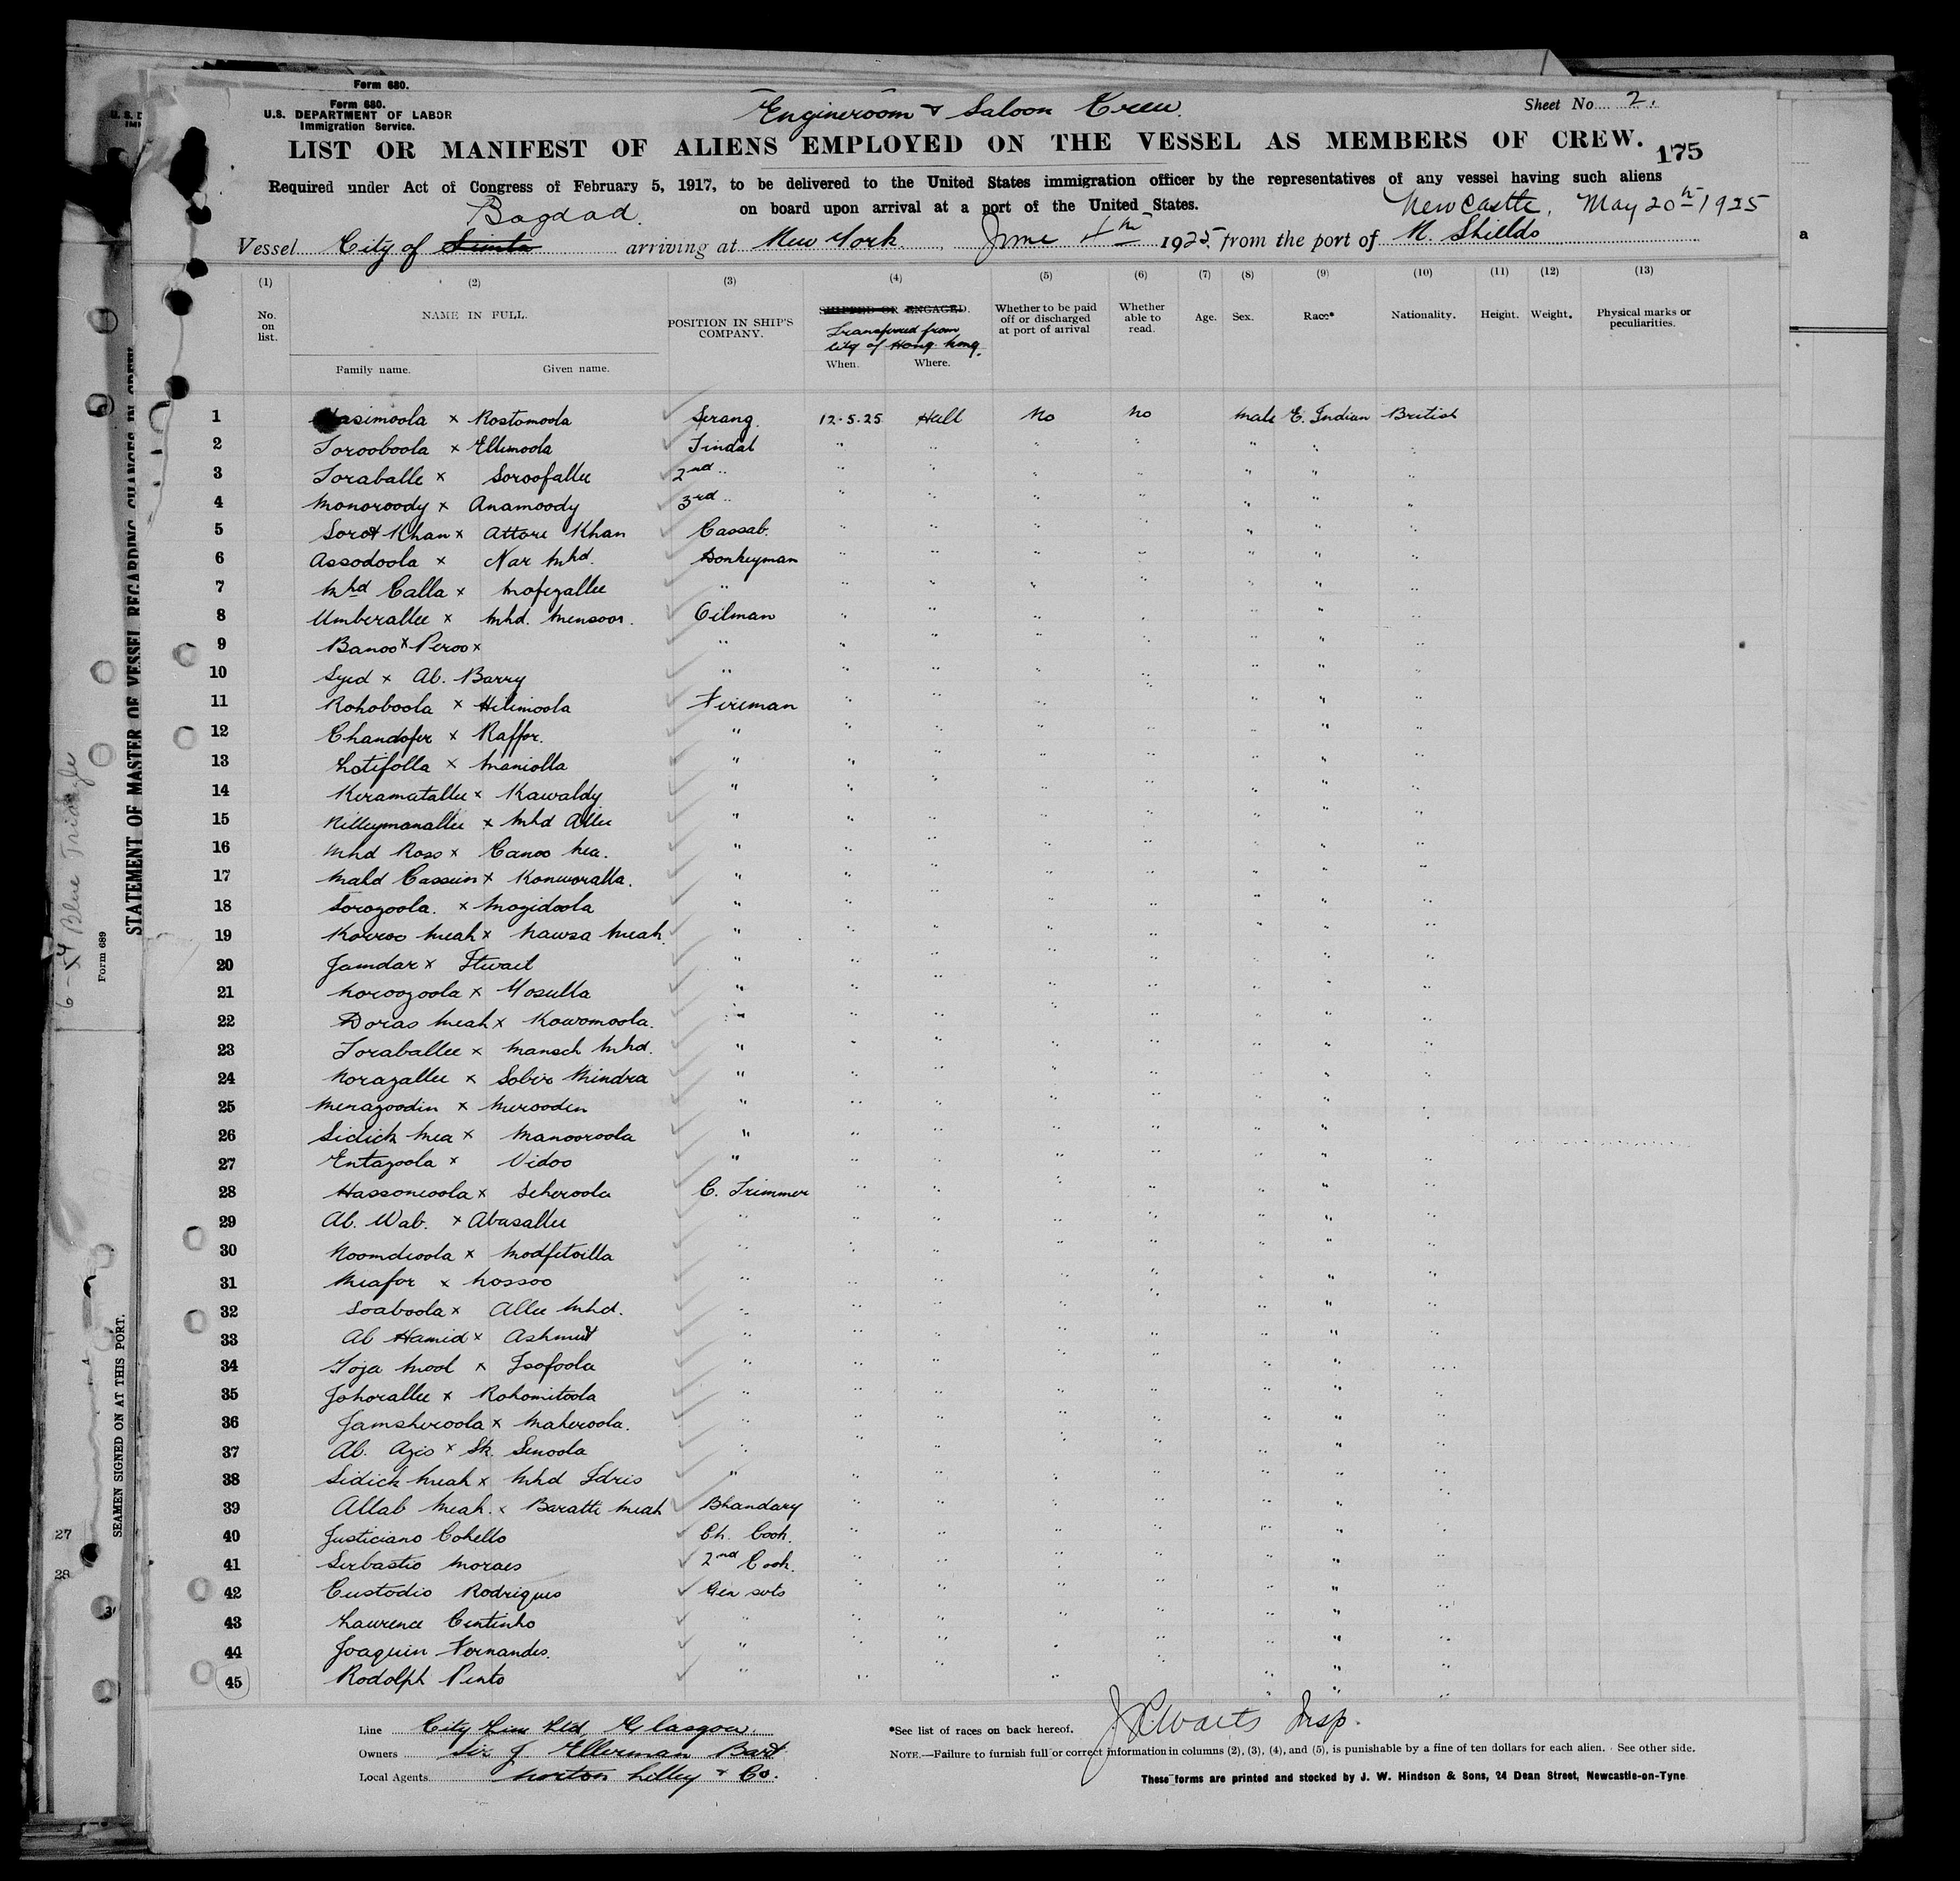 Form 680.
Form 680.
U.S. DEPARTMENT OF LABOR
Immigration Service.
Engineroom & Saloon Crew.
Sheet No. 2.
LIST OR MANIFEST OF ALIENS EMPLOYED ON THE VESSEL AS MEMBERS OF CREW.
175
Required under Act of Congress of February 5, 1917, to be delivered to the United States immigration officer by the representatives of any vessel having such aliens
on board upon arrival at a port of the United States.
Bagdad.
Newcastle, May 20th 1925
Vessel City of Simla arriving at New York, June 4th 1925, from the port of N. Shields
(1) (2) (3) (4) (5) (6) (7) (8) (9) (10) (11) (12) (13)
No. on list. NAME IN FULL. Family name. Given name. POSITION IN SHIP'S COMPANY. SHIPPED OR ENGAGED. Transferred from City of Hong Kong. When. Where. Whether to be paid off or discharged at port of arrival Whether able to read. Age. Sex. Race* Nationality. Height. Weight. Physical marks or peculiarities.
1 asimoola x Rostomoola Serang. 12.5.25 Hull No No male E. Indian British
2 Torooboola x Ellimoola Tindal " " " " " " "
3 Toraballe x Soroofallee 2nd " " " " " " " "
4 Monoroody x Anamoody 3rd " " " " " " " "
5 Sorot Khan x Attore Khan Cassab. " " " " " " "
6 Assodoola x Nar Mhd. Donkeyman " " " " " " "
7 Mhd Calla x Mofezallee " " " " " " " "
8 Umberallee x Mhd. Mensoor. Oilman " " " " " " "
9 Banoo x Peroo x " " " " " " " "
10 Syed x Ab. Barry " " " " " " " "
11 Rohoboola x Hilimoola Fireman " " " " " " "
12 Chandofer x Raffor. " " " " " " " "
13 Lotifolla x Maniolla " " " " " " " "
14 Keramatallee x Kawaldy " " " " " " " "
15 Killeymanallee x Mhd Allee " " " " " " " "
16 Mhd Ross x Canoo Mea. " " " " " " " "
17 Mahd Cassein x Konworalla. " " " " " " " "
18 Sorozoola. x Mozidoola " " " " " " " "
19 Korroo Meah x Nawsa Meah. " " " " " " " "
20 Jamdar x Stwait " " " " " " " "
21 Noroozoola x Yosulla " " " " " " " "
22 Doras Meah x Kowomoola. " " " " " " " "
23 Toraballee x Mansch Mhd. " " " " " " " "
24 Norazallee x Sobir Mindra " " " " " " " "
25 Menazoodin x Merooden " " " " " " " "
26 Sidick Mea x Manooroola " " " " " " " "
27 Entazoola x Vidoo " " " " " " " "
28 Hassoneoola x Seheroola C. Trimmer " " " " " " "
29 Ab. Wab. x Abasallee " " " " " " " "
30 Noomdeoola x Modfitoilla " " " " " " " "
31 Meafor x Nossoo " " " " " " " "
32 Soaboola x Allee Mhd. " " " " " " " "
33 Ab Hamid x Ashmut " " " " " " " "
34 Toja Mool x Isofoola " " " " " " " "
35 Johorallee x Rohomitoola " " " " " " " "
36 Jamsheroola x Maheroola. " " " " " " " "
37 Ab. Azis x Sk. Senoola " " " " " " " "
38 Sidick Meah x Mhd Idris " " " " " " " "
39 Allab Meah. x Baratti Meah Bhandary " " " " " " "
40 Justiciano Cohello Ch. Cook. " " " " " " "
41 Sirbastio Moraes 2nd Cook. " " " " " " "
42 Custodio Rodriques Gen svts " " " " " " "
43 Laurence Cintinho " " " " " " " "
44 Joaquin Fernandes. " " " " " " " "
45 Rodolph Pinto " " " " " " " "
Line City Line Ltd, Glasgow.
Owners Sir J Ellerman Bart
Local Agents Norton Lilley & Co.
*See list of races on back hereof.
Insp.
NOTE.—Failure to furnish full or correct information in columns (2), (3), (4), and (5), is punishable by a fine of ten dollars for each alien. See other side.
These forms are printed and stocked by J. W. Hindson & Sons, 24 Dean Street, Newcastle-on-Tyne
STATEMENT OF MASTER OF VESSEL REGARDING CHANGES IN CREW
Form 689
6-54 Blue Triangle
SEAMEN SIGNED ON AT THIS PORT.
27
28
a